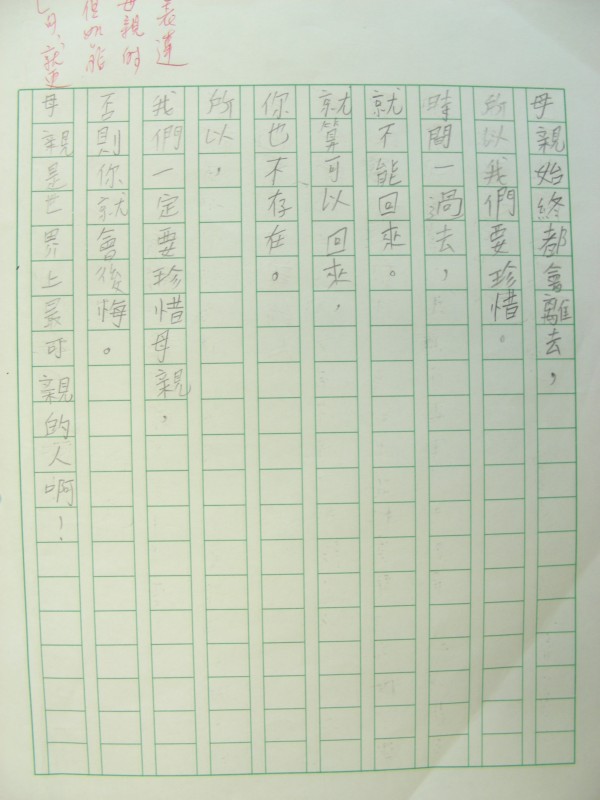 母親始終都會離去，
所以我們要珍惜。
時間一過去，
就不能回來。
就算可以回來，
你也不存在。
所以，
我們一定要珍惜母親，
否則你就會後悔。
母親是世界上最可親的人啊！
表達
母親的
但如能
就更